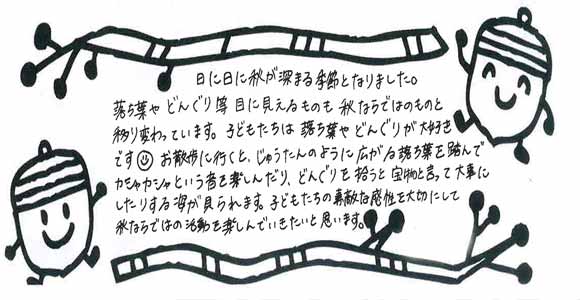 日に日に秋が深まる季節となりました。
落ち葉や どんぐり等 目に見えるものも 秋ならではのものと
移り変わっています。子どもたちは 落ち葉や どんぐりが大好き
です☺ お散歩に行くと、じゅうたんのように広がる落ち葉を踏んで
カシャカシャという音を楽しんだり、どんぐりを拾うと宝物と言って大事に
したりする姿が見られます。子どもたちの素敵な感性を大切にして
秋ならではの活動を楽しんでいきたいと思います。